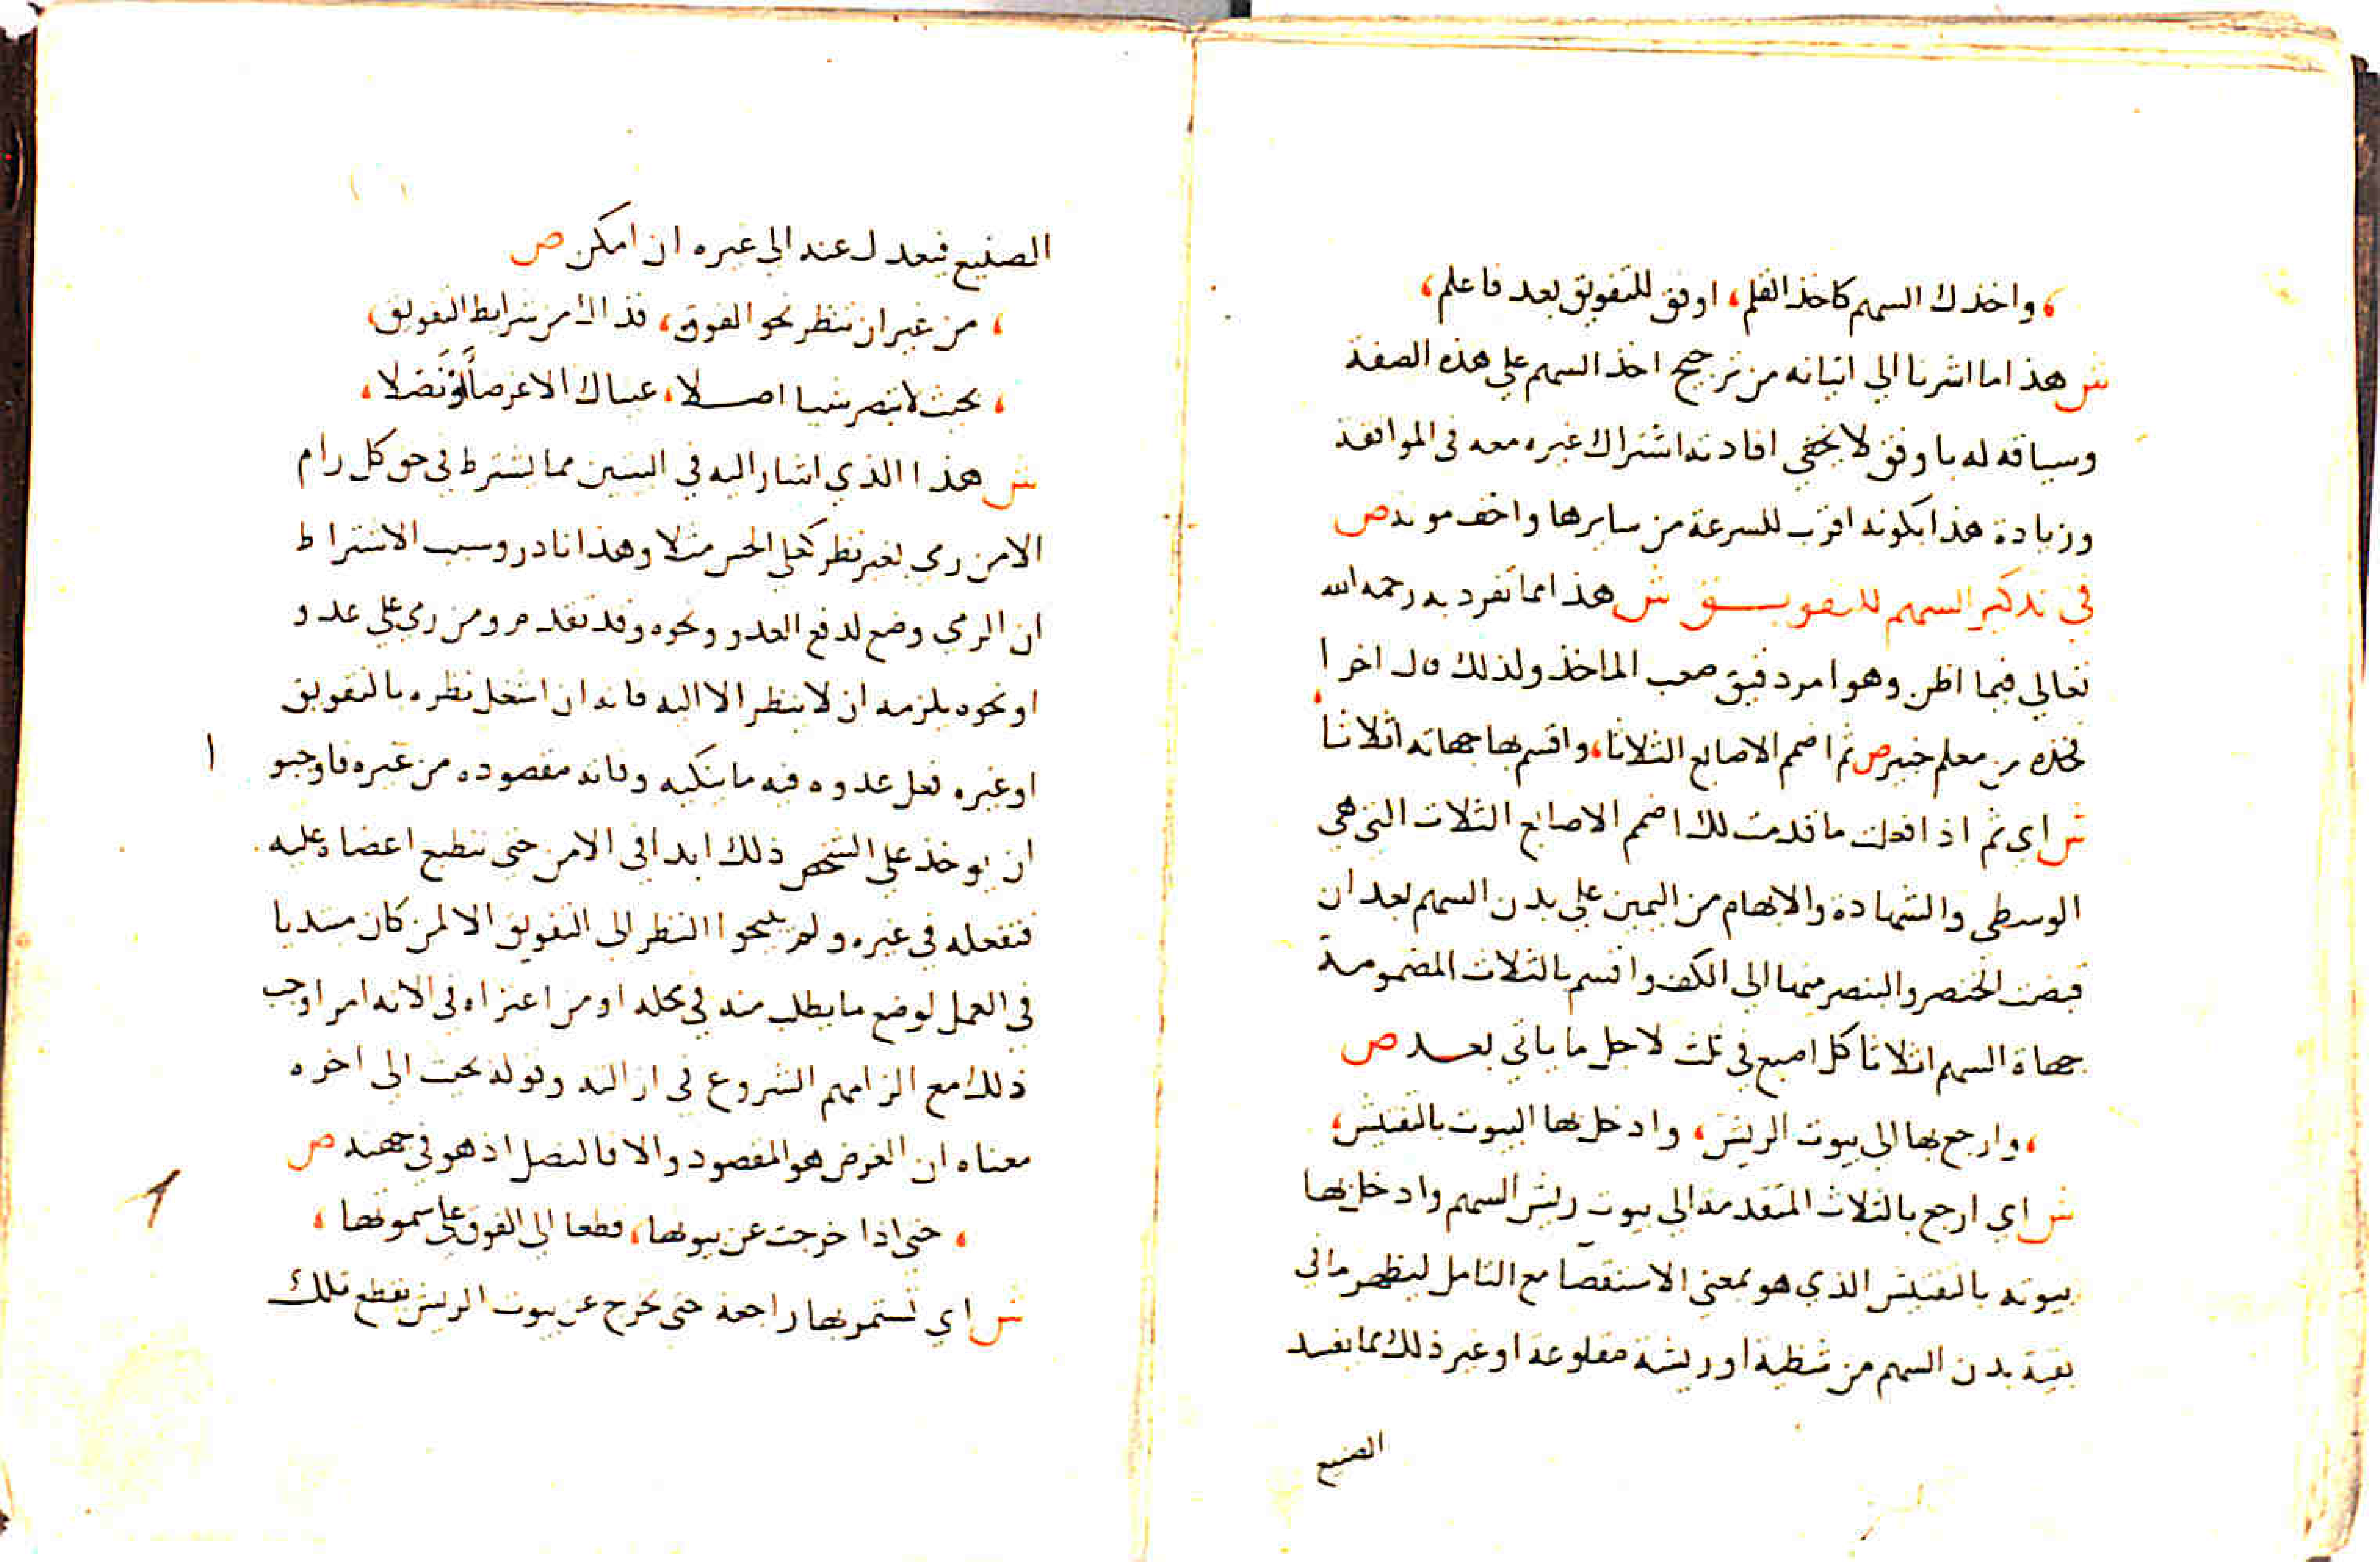 ، واخذك السهم كاخذ القلم، اوفق للتفويق بعد فاعلم،
ش هذا ما اشرنا الي اتيانه من ترجيح اخذ السهم علي هذه الصفة
وسياقه له باوفق لا يخفي افادته اشتراك غيره معه في الموافقة
وزيادة هذا بكونه اقرب للسرعة من سايرها واخف مونه ص
في تذكير السهم للتفويـــق ش هذا مما تفرد به رحمه الله
تعالي فيما اظن وهو امر دقيق صعب الماخذ ولذلك قال اخرا
فخذه من معلم خبير ص ثم اضمم الاصابع الثلاثا، واقسم بها جهاته اثلاثا
ش اي ثم اذا فعلت ما قدمت لك اضمم الاصابع الثلاث التي هي
الوسطي والشهادة والابهام من اليمين علي بدن السهم بعد ان
قبضت الخنصر والبنصر منها الي الكف واقسم بالثلاث المضمومة
جهاة السهم اثلاثا كل اصبع في ثلث لاجل ما ياتي بعـــد ص
، وارجع بها الي بيوت الريش، وادخل بها البيوت بالتفتيش،
ش اي ارجع بالثلاث المتقدمة الي بيوت ريش السهم وادخل بها
بيوته بالتفتيش الذي هو بمعني الاستقصا مع التامل ليظهر ما في
بقية بدن السهم من شظية او ريشة مقلوعة او غير ذلك مما يفسد
الصنيع
الصنيع فيعدل عنه الي غيره ان امكن ص
، من غير ان تنظر نحو الفوق، فذاك من شرايط التفويق،
، بحيث لا تبصر شيا اصـــلا، عيناك الا غرضا او نصلا،
ش هذا الذي اشار اليه في البيتين مما يشترط في حق كل رام
الا من رمي بغير نظر كعلي الحس مثلا وهذا نادر وسبب الاشتراط
ان الرمي وضع لدفع العدو ونحوه وقد تقدم ومن رمي علي عدو
او نحوه يلزمه ان لا ينظر الا اليه فانه ان اشغل نظره بالتفويق
او غيره فعل عدوه فيه ما ينكيه وفاته مقصوده من غيره فاوجبوا
ان يوخذ علي الشخص ذلك ابدا في الامن حتي تنطبع اعضاه عليه
فتفعله في غيره ولم يبيحوا النظر الي التفويق الا لمن كان مبتديا
في العمل لوضع ما يطلب منه في محله او من اعتراه في الاته امر اوجب
ذلك مع الزامهم الشروع في ازالته وقوله بحيث الي اخره
معناه ان الغرض هو المقصود والا فالنصل اذ هو في جهته ص
، حتي اذا خرجت عن بيوتها، قطعا الي الفوق علي سموتها،
ش اي تستمر بها راجعة حتي تخرج عن بيوت الريش بقطع تلك